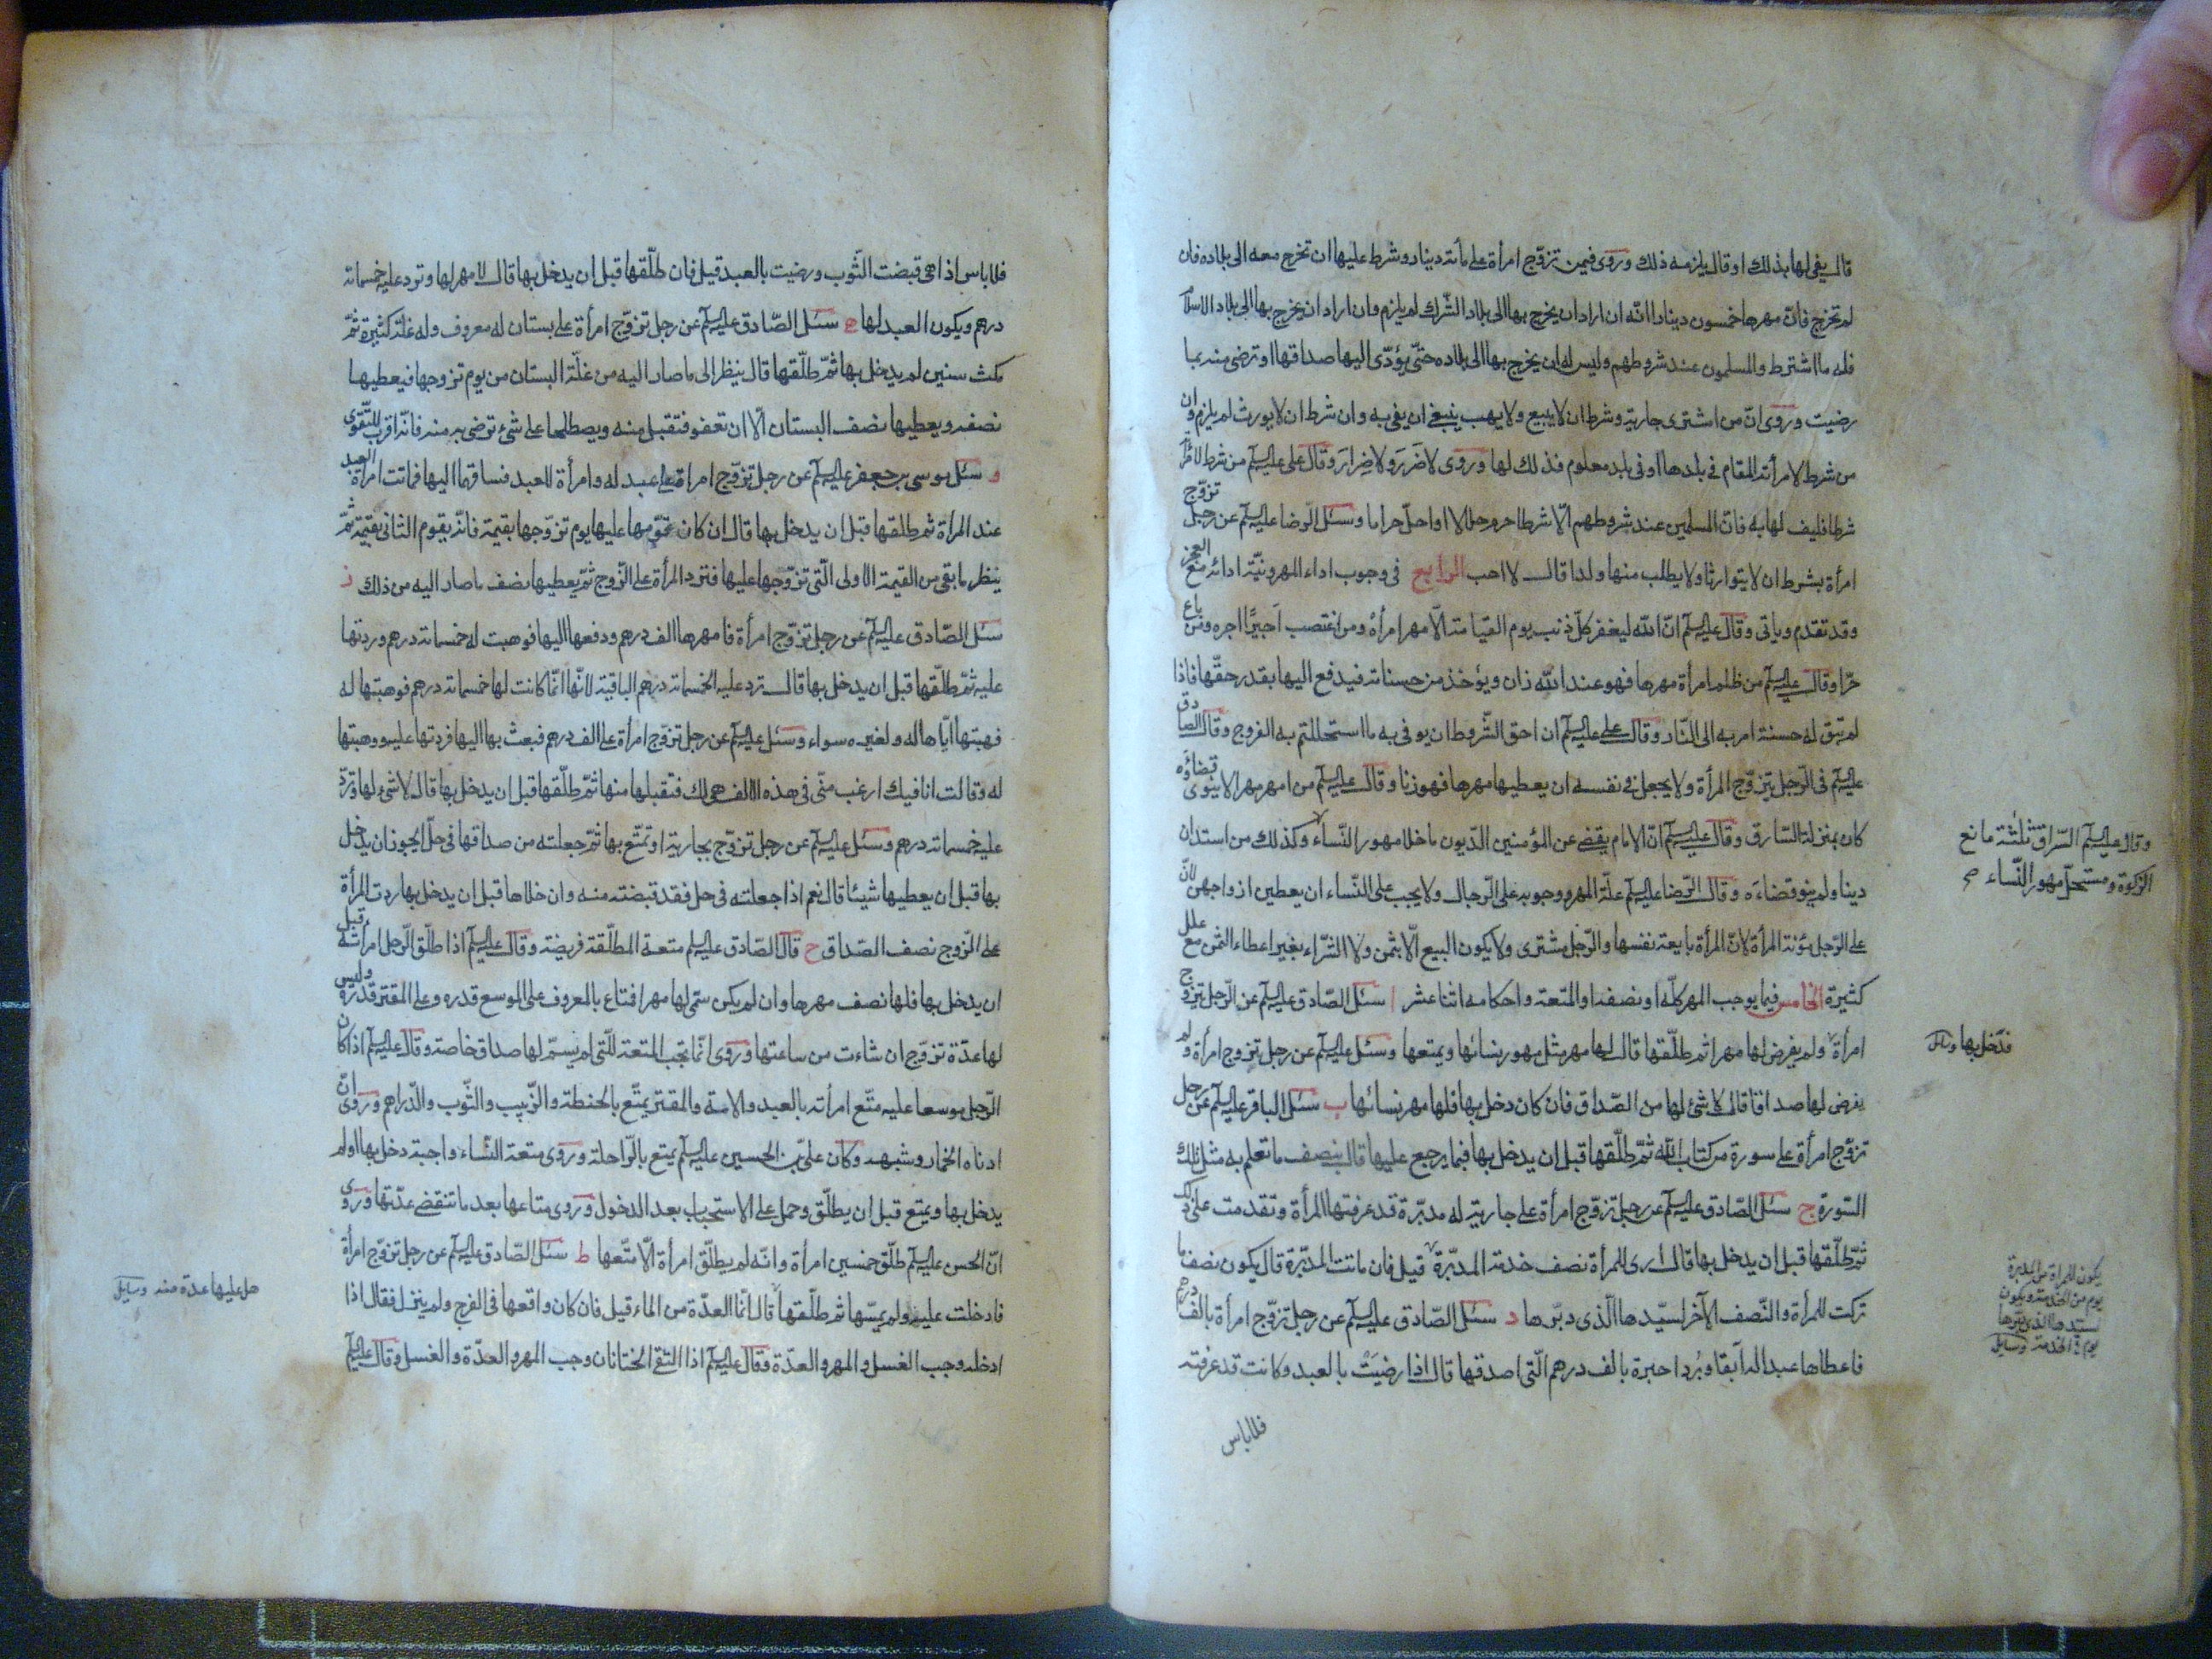 قال يفي لها بذلك او قال يلزمه ذلك وروى فيمن تزوّج امرأة على مأته دينار وشرط عليها ان تخرج معه الى بلاده فان
لم تخرج فانّ مهرها خمسون دينارا انّه ان اراد ان يخرج بها الى بلاد الشّرك لم يلزم وان اراد ان يخرج بها الى بلاد الاسلام
فله ما اشترط والمسلمون عند شروطهم وليس له ان يخرج بها الى بلاده حتّى يؤدّى اليها صداقها او ترضى منه بما
رضيت وروى انّ من اشترى جارية وشرط ان لا يبيع ولا يهب ينبغي ان يفي به وان شرط ان لا يورث لم يلزم وان
من شرط لامرأته المقام في بلدها او في بلد معلوم فذلك لها وروى لا ضَرَرَ ولا ضِرارَ وقال على عليه السلم من شرط لامرأته
شرطا فليف لها به فانّ المسلمين عند شروطهم الّا شرطا حرم حلالا او احلّ حراما وسئل الرّضا عليه السلم عن رجل تزوّج
امرأة بشرط ان لا يتوارثا ولا يطلب منها ولدا قال لا احب الرابع في وجوب اداء المهر ونيّة ادائه مع العجز
وقد تقدم وياتى وقال عليه السلم انّ الله ليغفر كلّ ذنب يوم القيامة الّا مهر امرأة ومن اغتصب اجيرًا اجره ومن باع
حرّا وقال عليه السلم من ظلم امرأة مهرها فهو عند الله زان ويؤخذ من حسناته فيدفع اليها بقدر حقّها فاذا
لم يبق له حسنة امر به الى النّار وقال على عليه السلم ان احق الشّروط ان يوفى به ما استحللتم به الفروج وقال الصادق
عليه السلم في الرّجل يتزوّج المرأة ولا يجعل في نفسه ان يعطيها مهرها فهو زنا وقال عليه السلم من امهر مهرا لا ينوى قضاؤه
كان بمنزلة السّارق وقال عليه السلم انّ الامام يقضى عن المؤمنين الدّيون ما خلا مهور النّساء وكذلك من استدان
دينا ولم ينو قضاءَه وقال الرّضا عليه السلم علّة المهر ووجوبه على الرّجال ولا يجب على النّساء ان يعطين ازواجهن لانّ
على الرّجل مؤنة المرأة لانّ المرأة بايعة نفسها والرّجل مشترى ولا يكون البيع الّا بثمن ولا الشّراء بغير اعطاء الثمن مع علل
كثيرة الخامس فيما يوجب المهر كلّه او نصفه او المتعة واحكامه اثنا عشر ا سئل الصّادق عليه السلم عن الرّجل تزوج
امرأة ولم يفرض لها مهرا ثم طلّقها قال لها مهر مثل مهور نسائها ويمتعها وسئل عليه السلم عن رجل تزوج امرأة ولم
يفرض لها صداقا قال لا شئ لها من الصّداق فان كان دخل بها فلها مهر نسائها ب سئل الباقر عليه السلم عن رجل
تزوّج امرأة على سورة من كتاب الله ثمّ طلّقها قبل ان يدخل بها فبما يرجع عليها قال بنصف ما تعلم به مثل تلك
السّورة ج سئل الصّادق عليه السلم عن رجل تزوّج امرأة على جارية له مدبّرة قد عرفتها المرأة وتقدمت على ذلك
ثمّ طلّقها قبل ان يدخل بها قال ارى للمرأة نصف خدمة المدبّرة قيل فان ماتت المدبّرة قال يكون نصف ما
تركت للمرأة والنّصف الآخر لسيّدها الّذى دبّرها د سئل الصّادق عليه السلم عن رجل تزوّج امرأة بالف درهم
فاعطاها عبدا له آبقا وبُردا حبرة بالف درهم الّتى اصدقها قال اذا رضيَت بالعبد وكانت قد عرفته
فلا باس
وقال عليه السلم السّراق ثلثة مانع
الزكوة ومستحلّ مهور النّساء صح
فدخل بها وسائل
يكون للمرأة من المدبرة
يوم من الخدمة ويكون
لسيدها الذى دبّرها
يوم في الخدمة وسائل
فلا باس اذا هى قبضت الثّوب ورضيت بالعبد قيل فان طلّقها قبل ان يدخل بها قال لا مهر لها وترد عليه خمسمائة
درهم ويكون العبد لها ه سئل الصّادق عليه السلم عن رجل تزوّج امرأة على بستان له معروف وله غلّة كثيرة ثمّ
مكث سنين لم يدخل بها ثمّ طلّقها قال ينظر الى ما صار اليه من غلّة البستان من يوم تزوجها فيعطيها
نصفه ويعطيها نصف البستان الّا ان تعفو فتقبل منه ويصطلحا على شئ ترضى به منه فانّه اقرب للتّقوى
و سئل موسى بن جعفر عليه السلم عن رجل تزوّج امرأة على عبد له وامرأة للعبد فساقهما اليها فماتت امرأة العبد
عند المرأة ثم طلقها قبل ان يدخل بها قال ان كان قوّمها عليها يوم تزوّجها بقيمة فانّه يقوم الثانى بقيمة ثمّ
ينظر ما بقى من القيمة الاولى الّتى تزوّجها عليها فترد المرأة على الزّوج ثمّ يعطيها نصف ما صار اليه من ذلك ز
سئل الصّادق عليه السلم عن رجل تزوّج امرأة فامهرها الف درهم ودفعها اليها فوهبت له خمسمائة درهم وردتها
عليه ثمّ طلّقها قبل ان يدخل بها قال ترد عليه الخمسمائة درهم الباقية لانّها انّما كانت لها خمسمائة درهم فوهبتها له
فهبتها ايّاها له ولغيره سواء وسئل عليه السلم عن رجل تزوّج امرأة على الف درهم فبعث بها اليها فردتها عليه ووهبتها
له وقالت انا فيك ارغب منّى في هذه الالف هى لك فتقبلها منها ثمّ طلّقها قبل ان يدخل بها قال لا شئ لها وتردّ
عليه خمسمائة درهم وسئل عليه السلم عن رجل تزوّج بجارية او تمتّع بها ثمّ جعلته من صداقها في حلّ ايجوز ان يدخل
بها قبل ان يعطيها شيئا قال نعم اذا جعلته في حل فقد قبضته منه وان خلاها قبل ان يدخل بها ردت المرأة
على الزّوج نصف الصّداق ح قال الصّادق عليه السلم متعة المطلّقة فريضة وقال عليه السلم اذا طلّق الرّجل امرأته قبل
ان يدخل بها فلها نصف مهرها وان لم يكن سمّى لها مهرا فمتاع بالمعروف على الموسع قدره وعلى المقتر قدره وليس
لها عدّة تزوّج ان شاءت من ساعتها وروى انّما تجب المتعة للّتى لم يسمّ لها صداق خاصة وقال عليه السلم اذا كان
الرّجل موسعا عليه متّع امرأته بالعبد والامة والمقتر يمتّع بالحنطة والزّبيب والثّوب والدّراهم وروى انّ
ادناه الخمار وشبهه وكان علىّ بن الحسين عليه السلم يمتع بالرّاحلة وروى متعة النّساء واجبة دخل بها او لم
يدخل بها ويمتع قبل ان يطلّق وحمل على الاستحباب بعد الدخول وروى متاعها بعد ما تنقضى عدّتها وروى
انّ الحسن عليه السلم طلّق خمسين امرأة وانّه لم يطلّق امرأة الّا متّعها ط سئل الصّادق عليه السلم عن رجل تزوّج امرأة
فادخلت عليه ولم يمسّها ثم طلّقها قال انّما العدّة من الماء قيل فان كان واقعها في الفرج ولم ينزل فقال اذا
ادخله وجب الغسل والمهر والعدّة وقال عليه السلم اذا التقى الختانان وجب المهر والعدّة والغسل وقال عليه السلم
هل عليها عدة منه وسايل